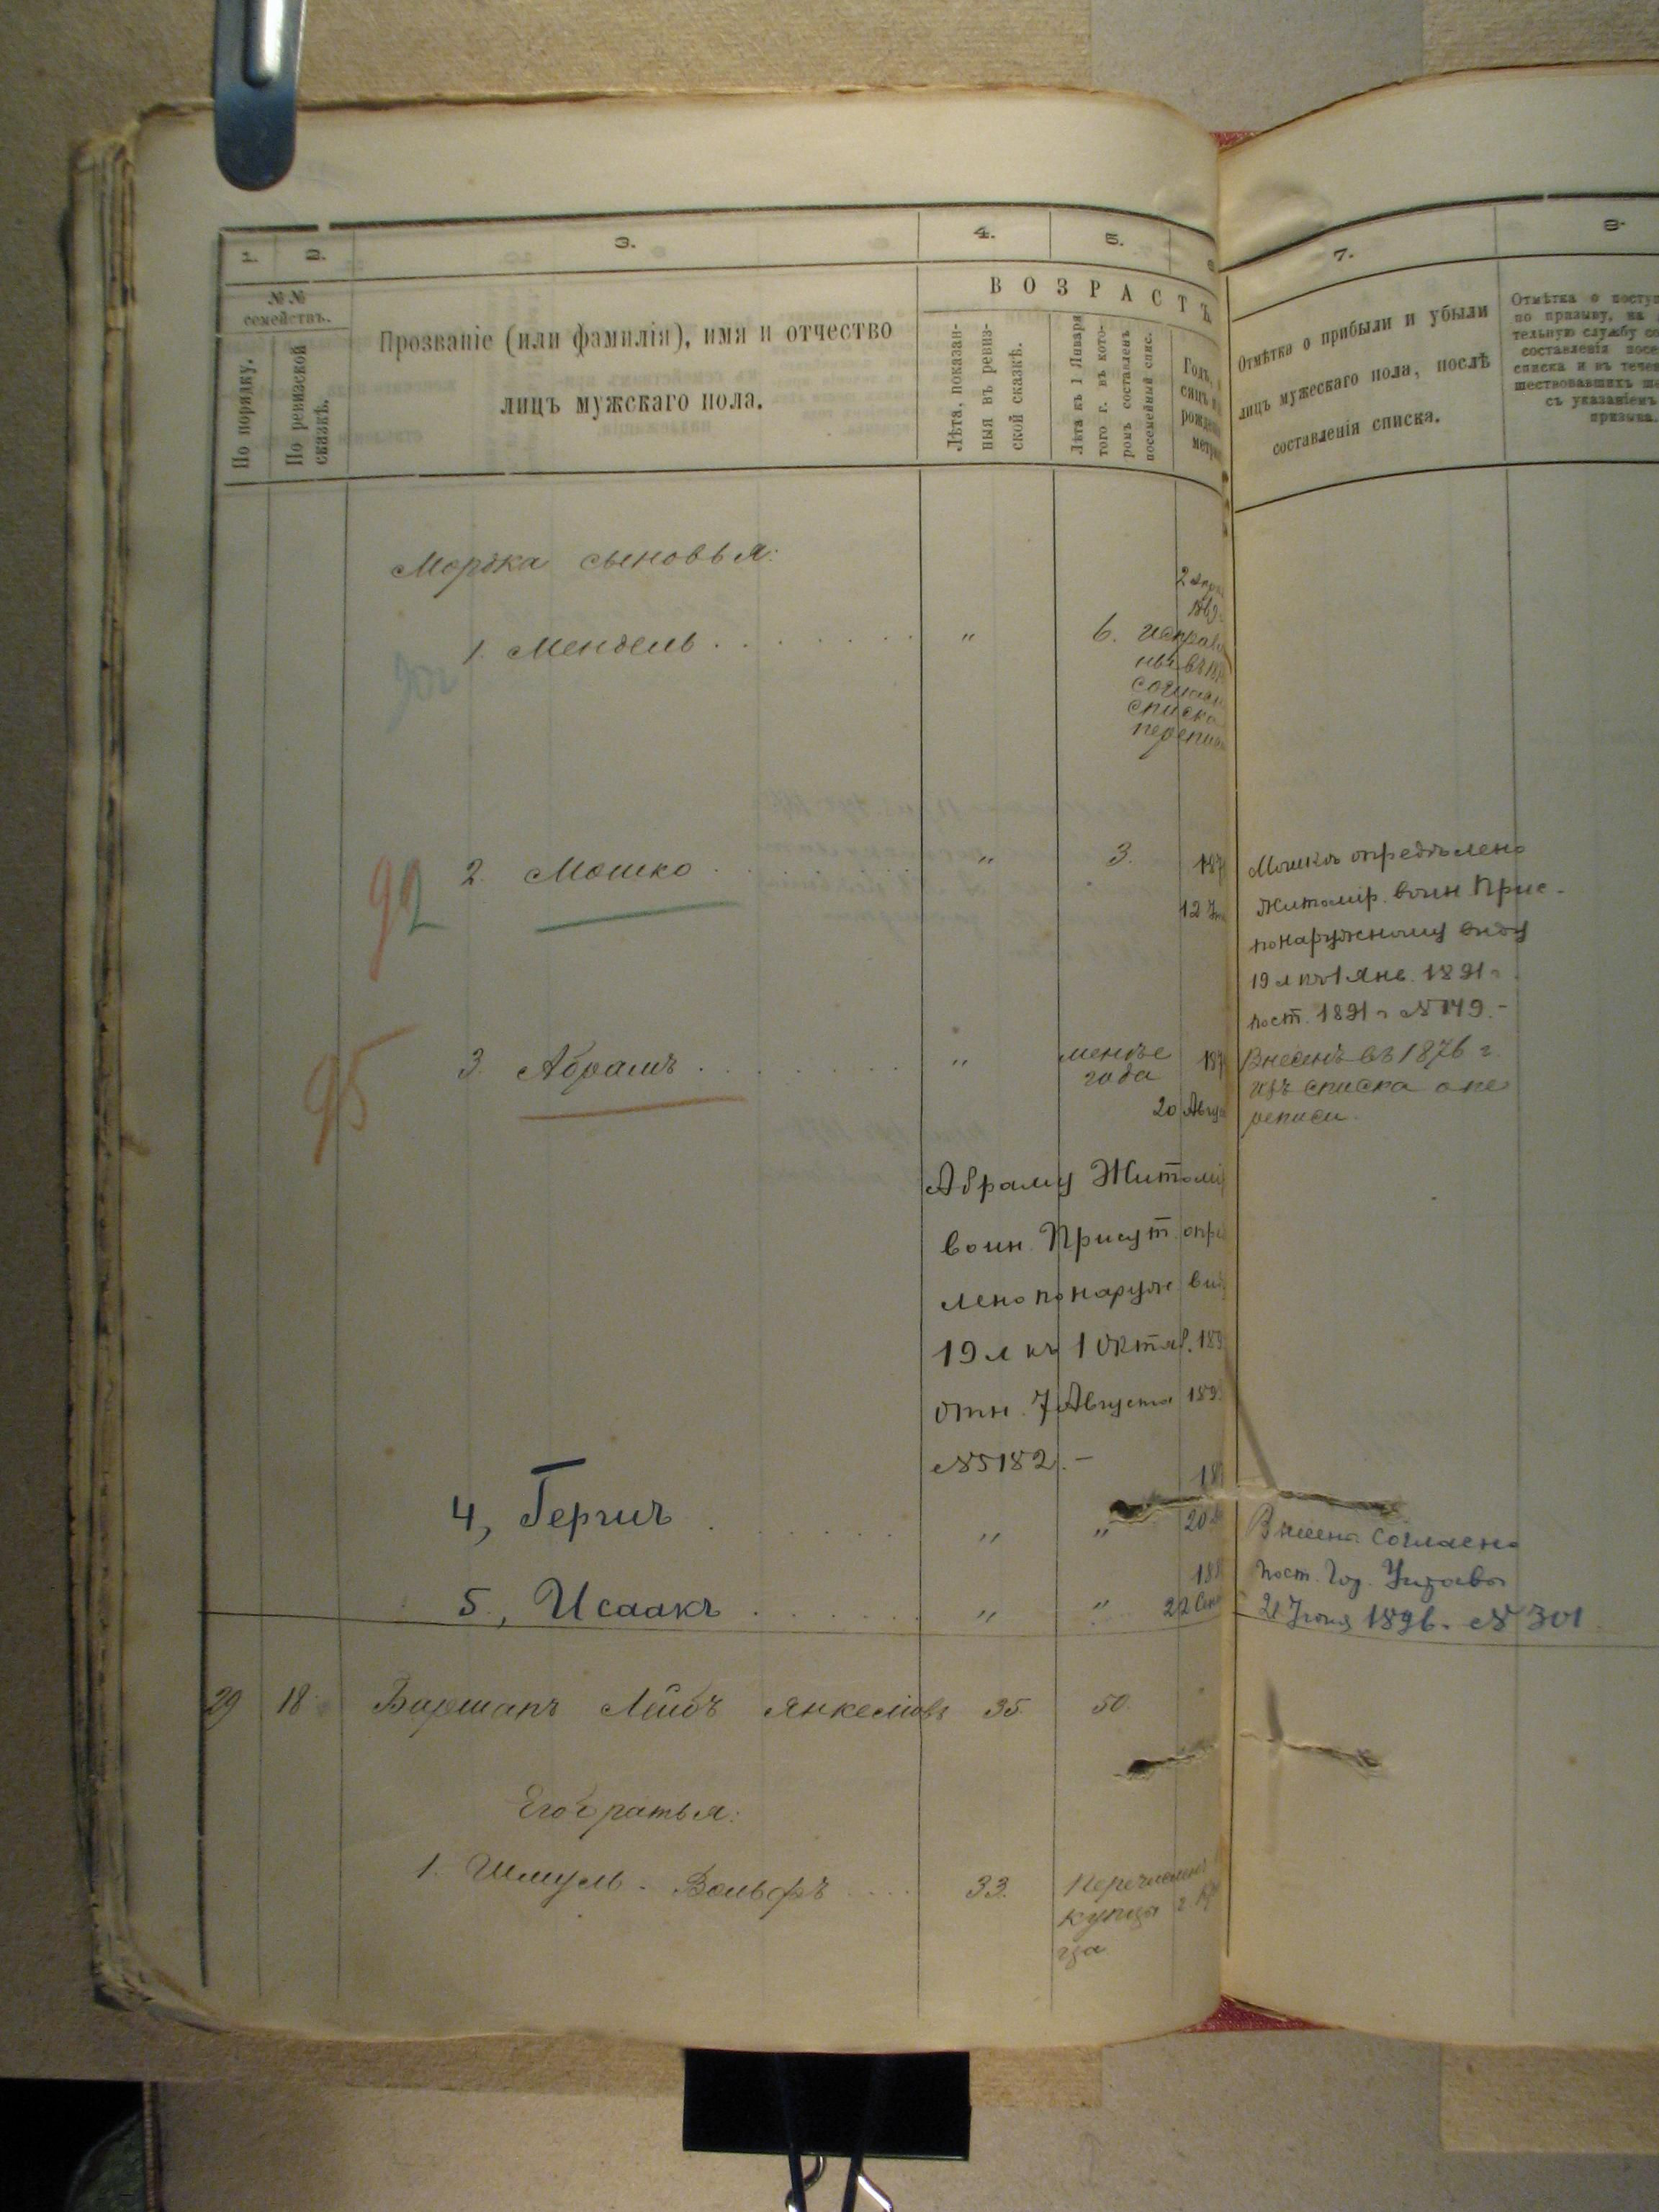 1. 2. 3. 4. 5. 6 7. 8.
№№
семействъ.
По порядку.
По ревизской
сказкѣ.
Прозваніе (или фамилія), имя и отчество
лицъ мужскаго пола.
ВОЗРАСТЪ
Лѣта, показан-
ныя въ ревиз-
ской сказкѣ.
Лѣта къ 1 Января
того г. въ кото-
ромъ составленъ
посемейный спис.
Годъ,
сяцъ и
рожден
метри
Отмѣтка о прибыли и убыли
лицъ мужескаго пола, послѣ
составленія списка.
Отмѣтка о посту
по призыву, на
тельную службу со
составленія посе
списка и въ тече
шествовавшихъ
съ указаніемъ
призыва.
Мордка сыновья:
1. Мендель . . . . . . . . " 6.
2 апр
списка
перепис
92 2. Мошко . . " 3. 187
12
Мошкѣ опредѣлено
Житомір. воин Прис-
по наружному виду
19 л къ 1 Янв. 1891 г.
пост. 1891 г №149.-
95 3. Абрамъ . . . . . . . . " менѣе
года 187
20 Авгус
Внесенъ въ 1876 г.
изъ списка о пе
реписи.
Абраму Житомі
воин. Присут. опре
лено по наруж. вид
19 л къ 1 Октяб. 189
отн. 7 Августа 189
№5182.-
4, Гершъ . . . . . . " " 18
20
Внесенъ Согласно
5, Исаакъ . . . . . . " " 18
22 Сен
пост. Гор. Управы
21 Іюня 1896. № 301
29 18 Бирманъ Лейбъ Янкелювъ 35 50.
Его братья:
1. Шмуль-Вольфъ . . . . 33. Перечисленъ
купцы г
ца